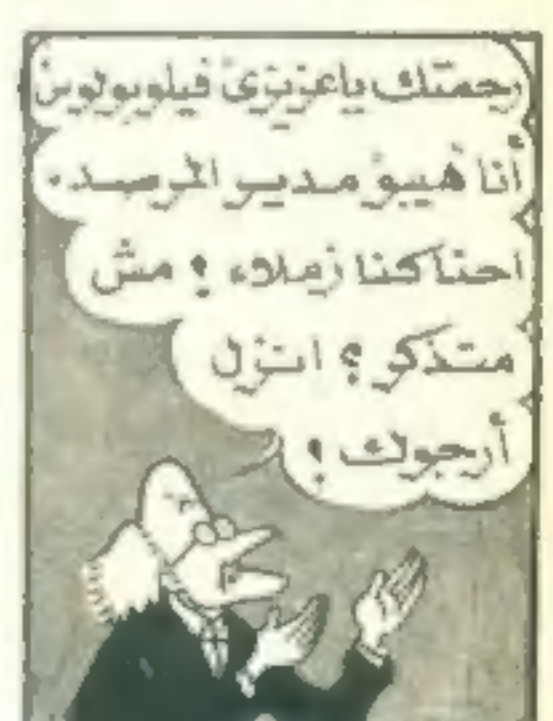 رحمتك ياعزيزى فيلوبولوس
أنا هيبو مدير المرصد.
احنا كنا زملاء ؟ مش
متذكر ؟ انزل
أرجوك !